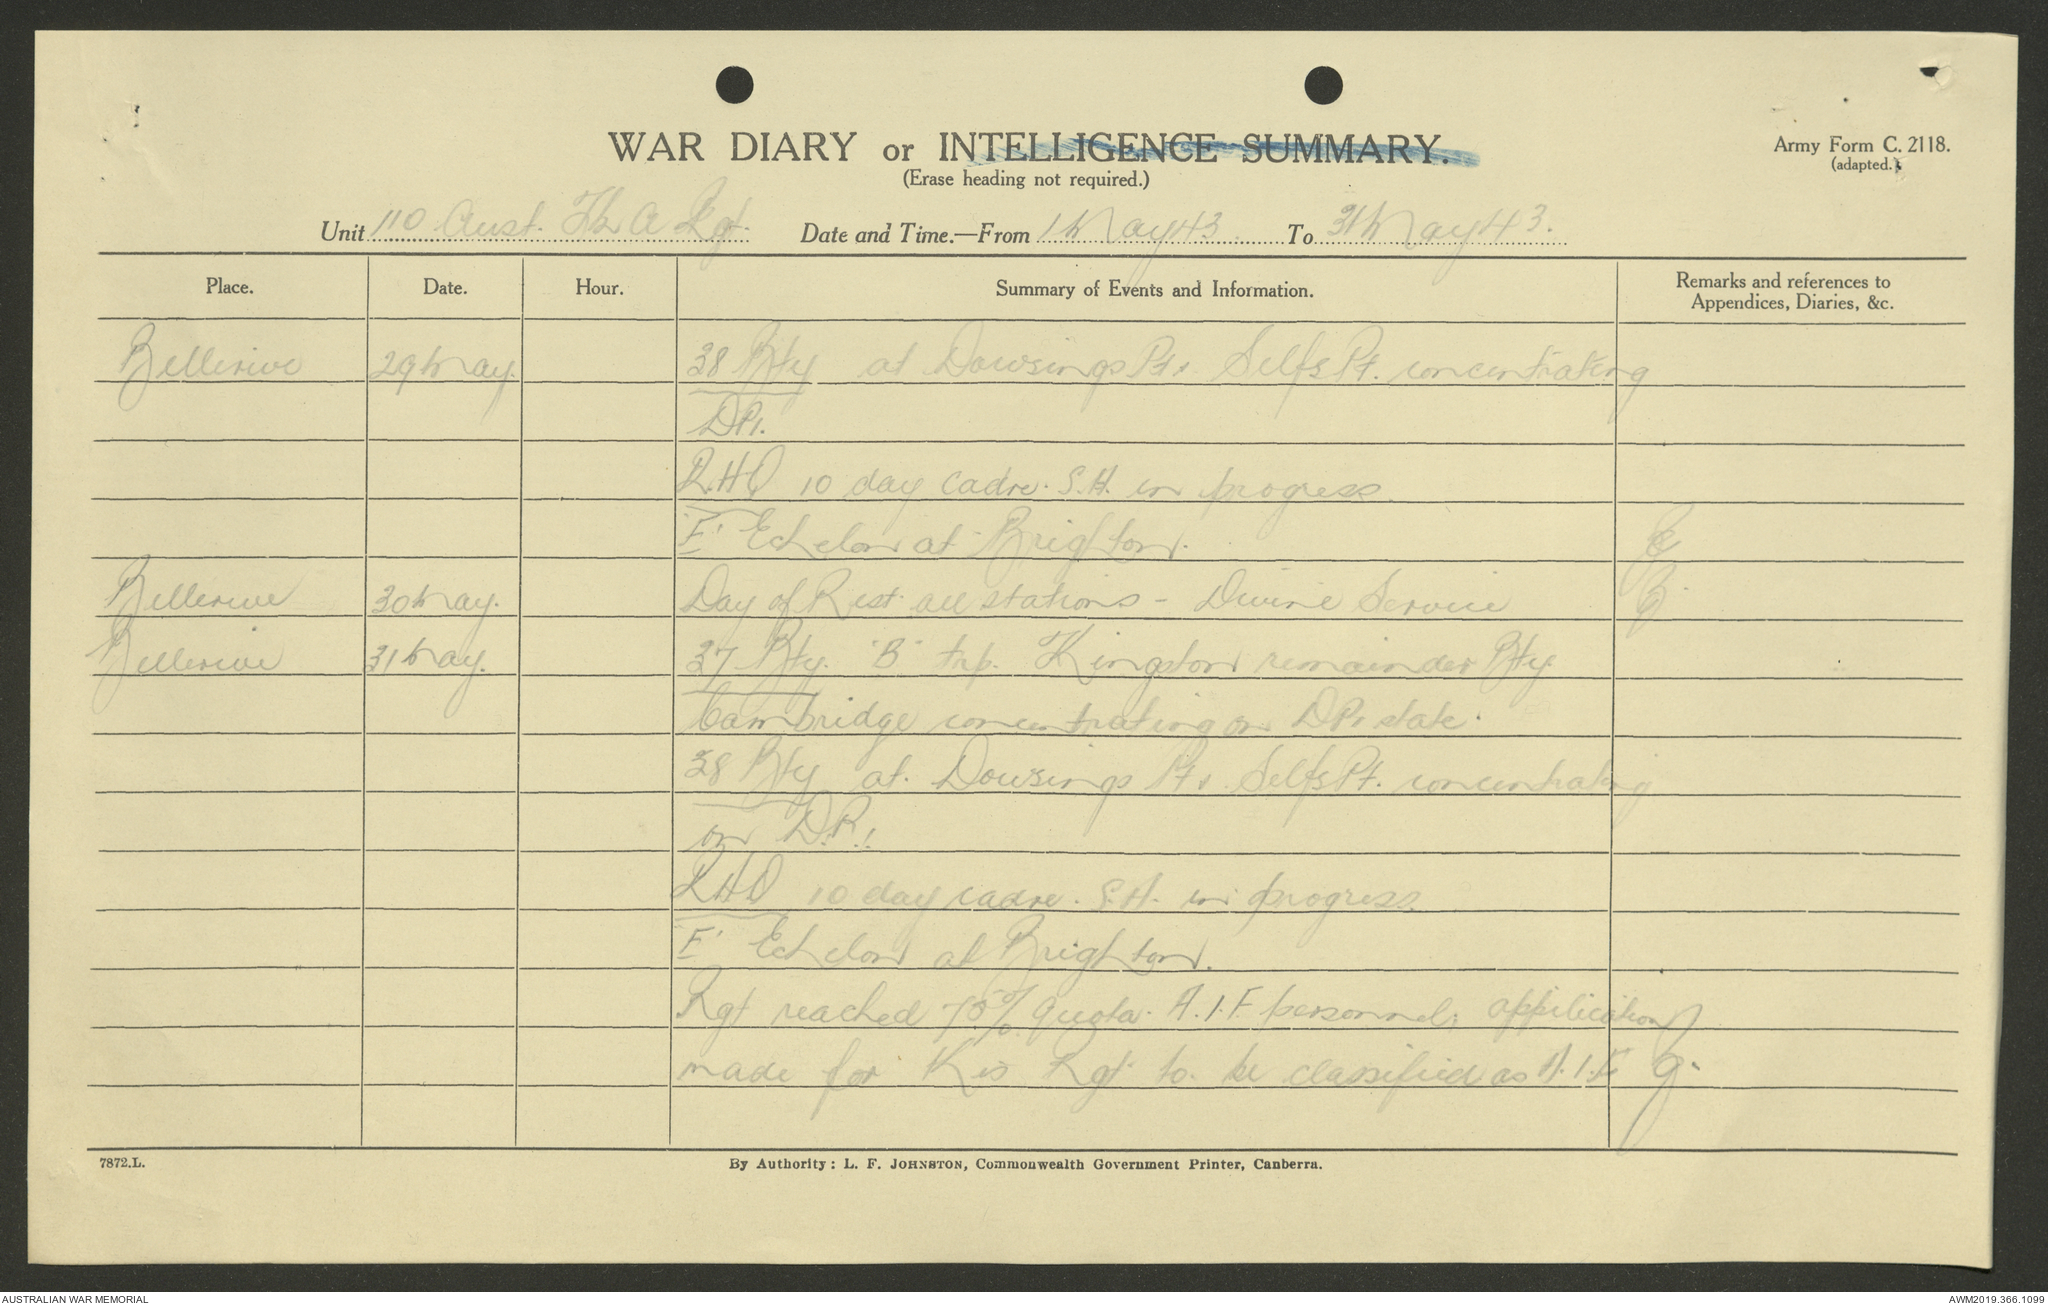 WAR DIARY or INTELLIGENCE SUMMARY.
(Erase heading not required.)
Army Form C. 2118.
(adapted.)
Unit 110 Aust. Tk A Rgt. Date and Time.—From 1 May 43 To 31 May 43.
Place. Date. Hour. Summary of Events and Information. Remarks and references to
Appendices, Diaries, &c.
Bellerive 29 May. 38 Bty at Dowsings Pt, Selfs Pt. concentrating
DP1.
RHQ 10 day cadre. S.A. in progress.
'F' Echelon at Brighton.
Bellerive 30 May. Day of Rest all stations - Divine Service
Bellerive 31 May. 37 Bty. "B" trp. Kingston remainder Bty
Cambridge concentrating on DP1 state.
38 Bty at Dowsings Pt, Selfs Pt. concentrating
on D.P.1.
RHQ 10 day cadre. S.A. in progress.
'F' Echelon at Brighton.
Rgt reached 75% quota. A.I.F personnel; application
made for Rgt to be classified as A.I.F
7872.L.
By Authority: L. F. JOHNSTON, Commonwealth Government Printer, Canberra.
AUSTRALIAN WAR MEMORIAL
AWM2019.366.1099